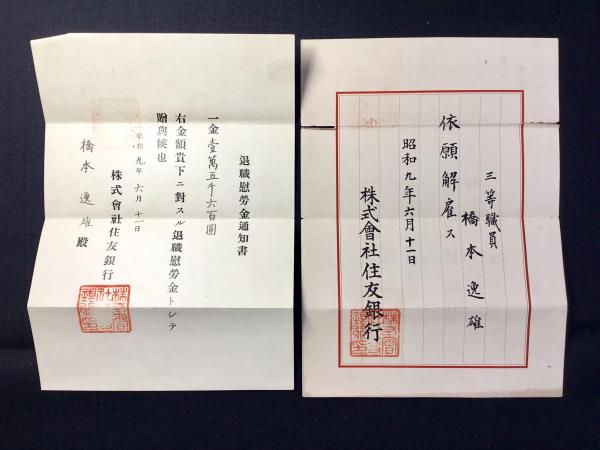 三等職員
橋本逸雄
依願解雇ス
昭和九年六月十一日
株式會社住友銀行
退職慰勞金通知書
一金壹萬五千六百圓
右金額貴下ニ對スル退職慰勞金トシテ
贈與候也
昭和九年六月十一日
株式會社住友銀行
橋本逸雄殿